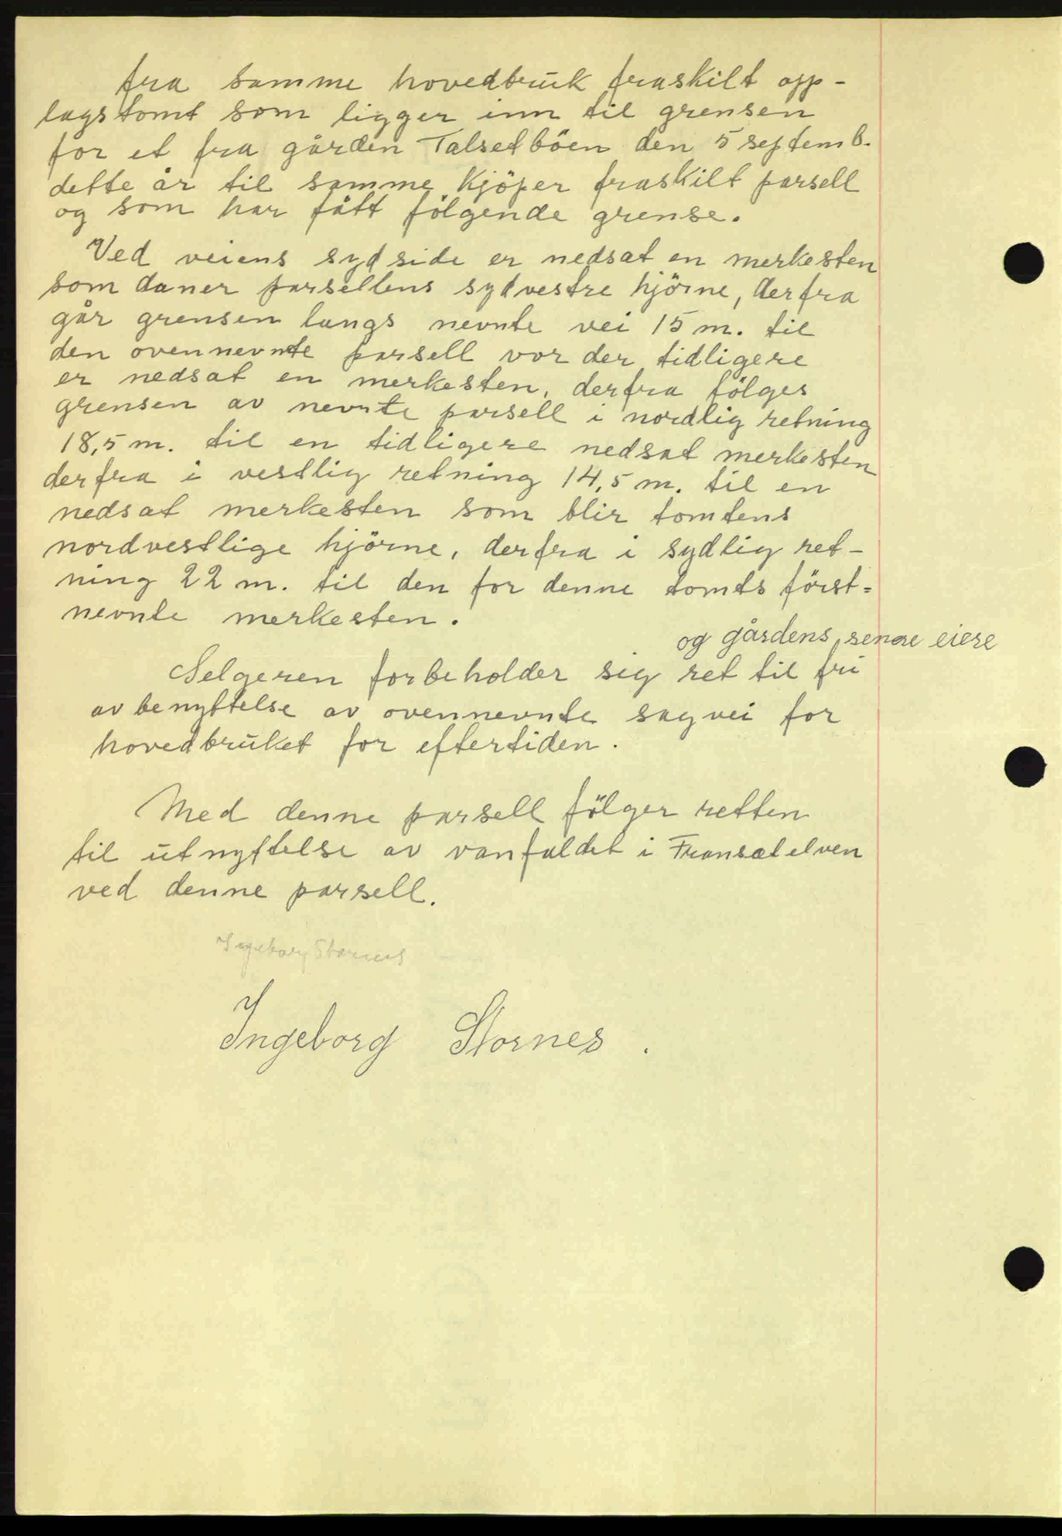 fra samme hovedbruk fraskilt opp-
lagstomt som ligger inn til grensen
for et fra gården Talsetböen den 5 septemb.
dette år til samme kjöper fraskilt parsell
og som har fått fölgende grense.
Ved veiens sydside er nedsat en merkesten
som daner parsellens sydvestre hjörne, derfra
går grensen langs nevnte vei 15 m. til
den ovennevnte parsell vor der tidligere
er nedsat en merkesten, derfra fölges
grensen av nevnte parsell i nordlig retning
18,5 m. til en tidligere nedsat merkesten
derfra i vestlig retning 14,5 m. til en
nedsat merkesten som blir tomtens
nordvestlige hjörne, derfra i sydlig ret-
ning 22 m. til den for denne tomts först-
nevnte merkesten.
og gårdens senere eiere
Selgeren forbeholder sig ret til fri
avbenyttelse av ovennevnte sagvei for
hovedbruket for eftertiden.
Med denne parsell fölger retten
til utnyttelse av vanfaldet i Fransetelven
ved denne parsell.
Ingeborg Stornes
Ingeborg Stornes.